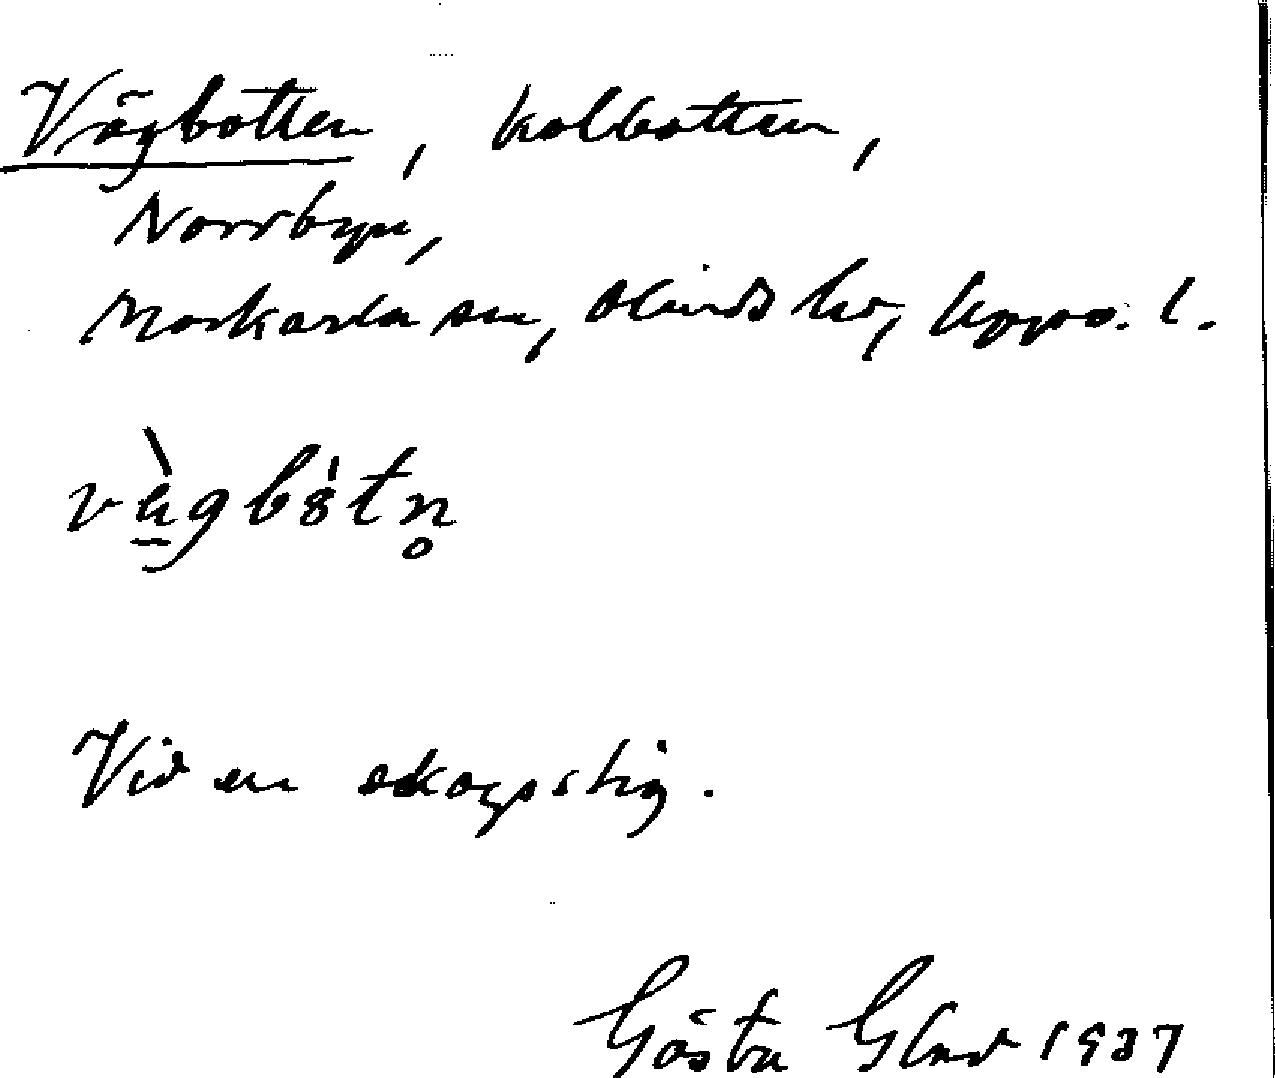 Vägbotten, kolbotten,
Norrbyn,
Morkarla sn, Olands hd, Upps. l.
vàgbòtn̥
Vid en skogsstig.
Gösta Glad 1937